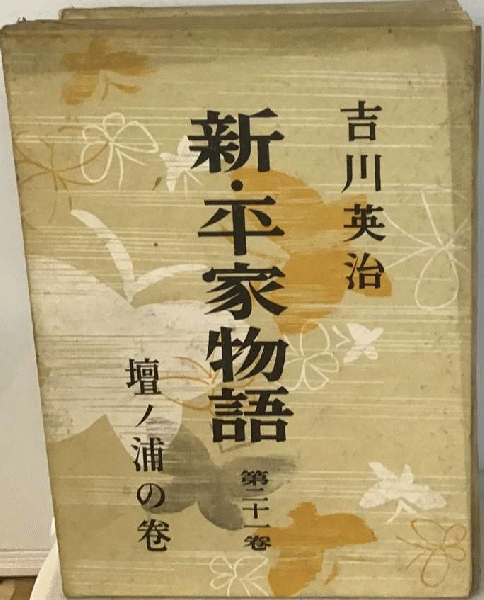 吉川英治
新・平家物語
第二十一巻
壇ノ浦の巻